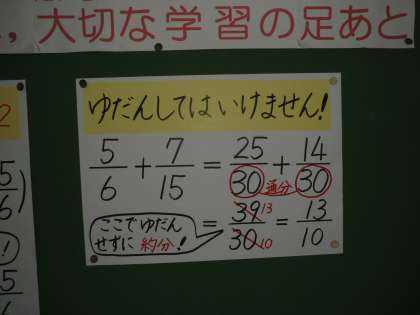 大切な学習の足あと
2
ゆだんしてはいけません!
5/6 + 7/15 = 25/30 + 14/30
通分
= 39/30 = 13/10
13
10
ここでゆだん
せずに約分!
5/6)
!
5